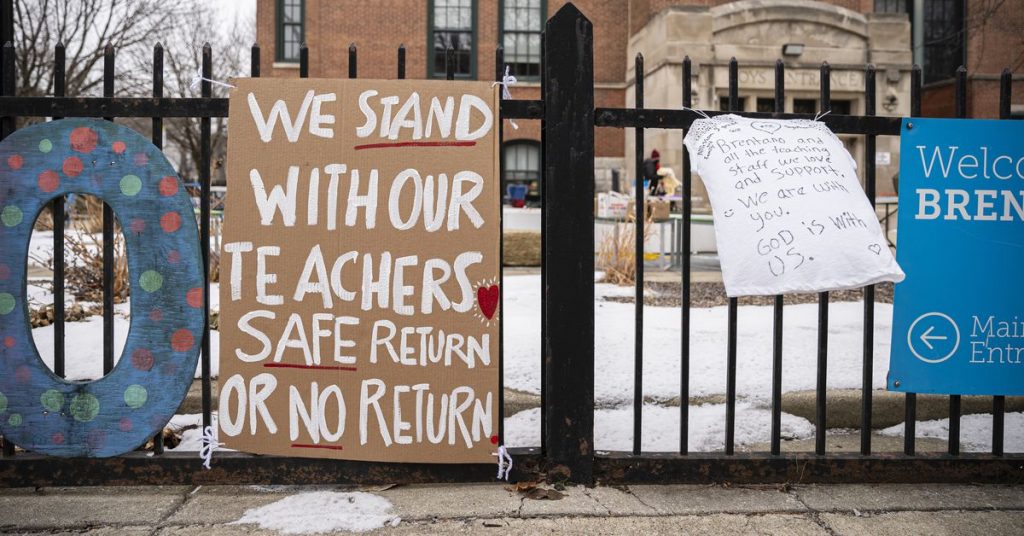 O
WE STAND
WITH OUR
TEACHERS
SAFE RETURN
OR NO RETURN
Brentano and
all the teaching
staff we love
and support.
We are with
you.
GOD is with
US.
OYS ENTRANCE
Welco
BREN
Main
Entr